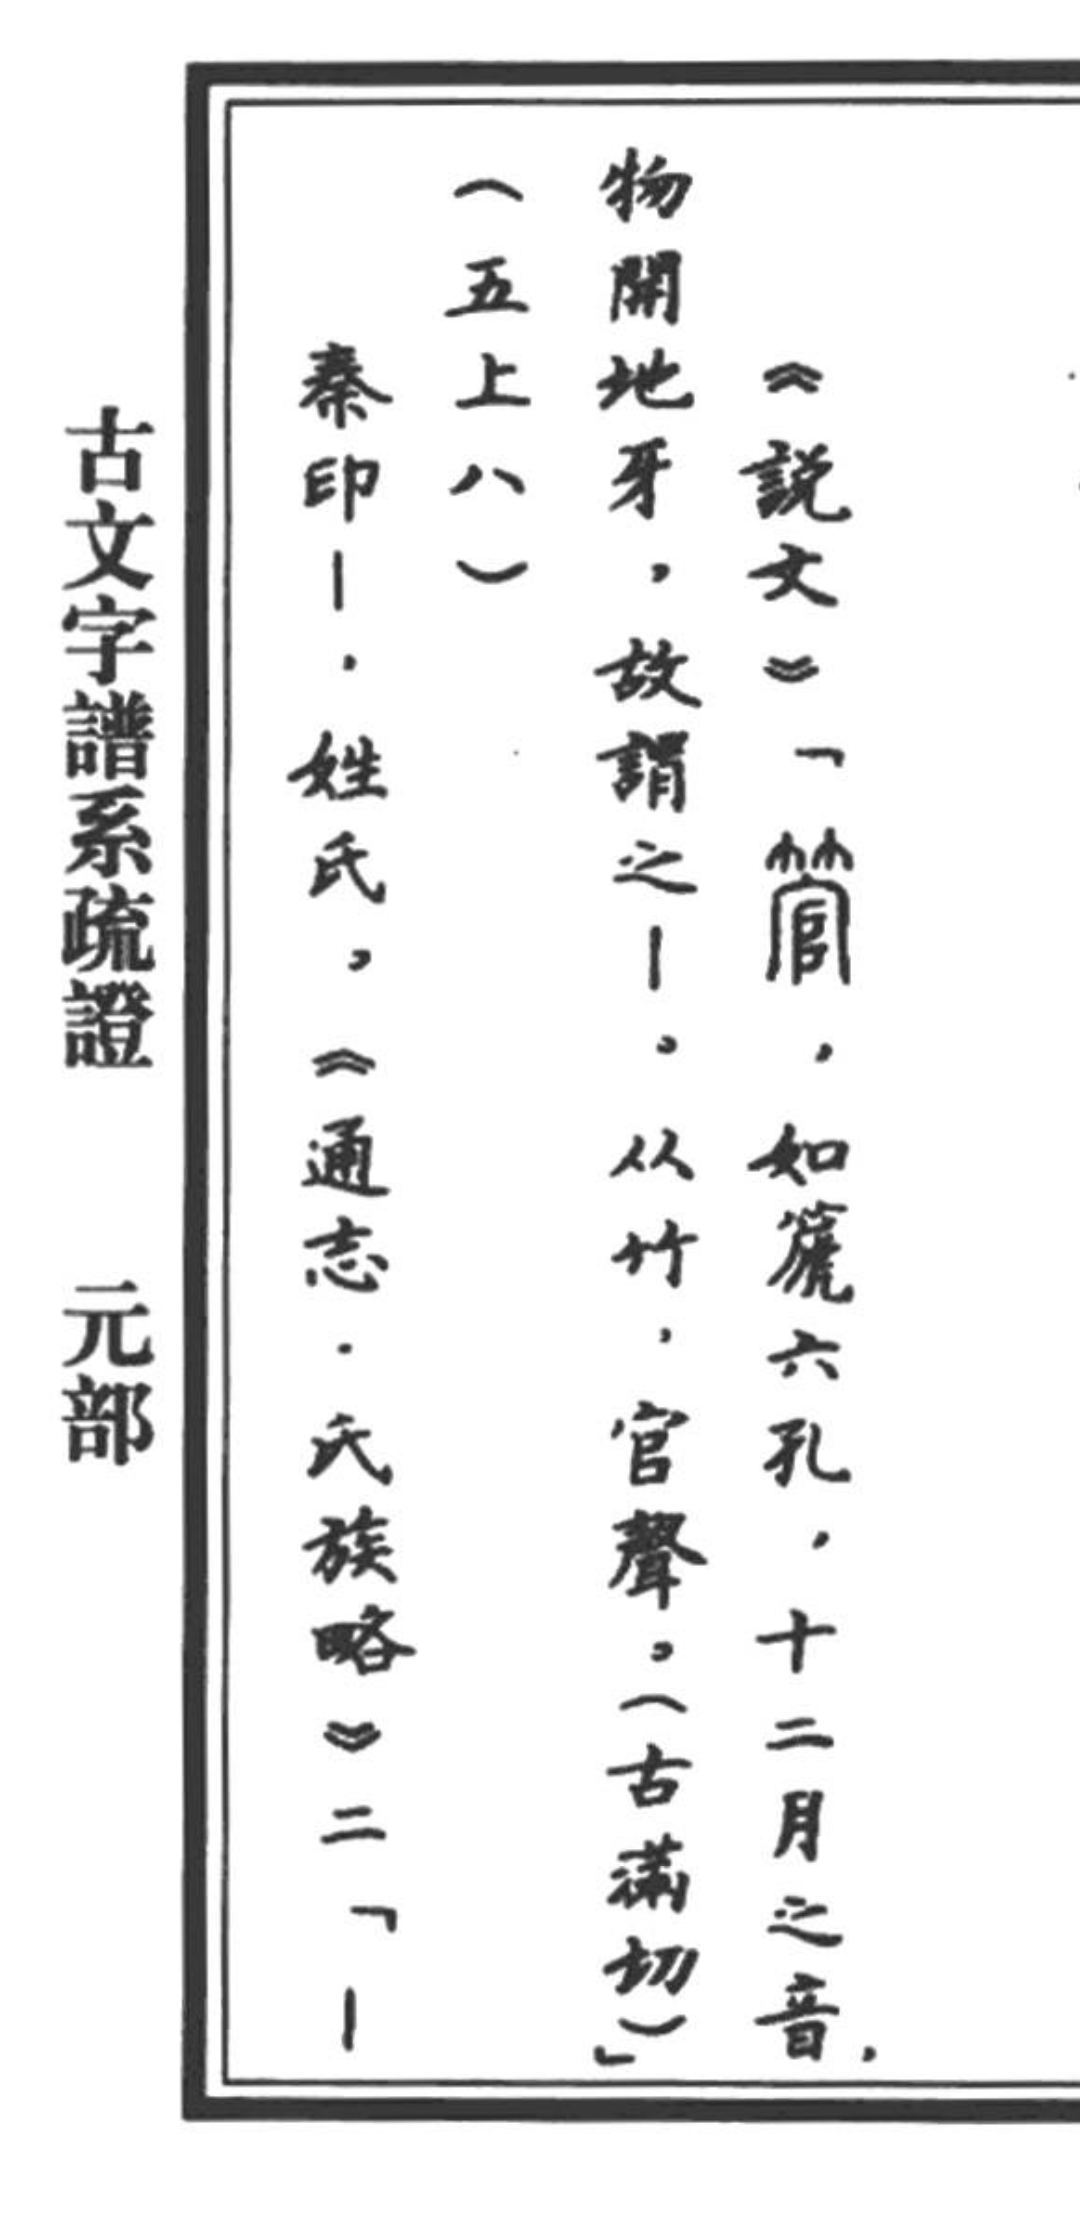 《説文》「管，如篪六孔，十二月之音，
物開地牙，故謂之—。从竹，官聲。（古滿切）」
（五上八）
秦印—．姓氏，《通志．氏族略》二「—
古文字譜系疏證　元部